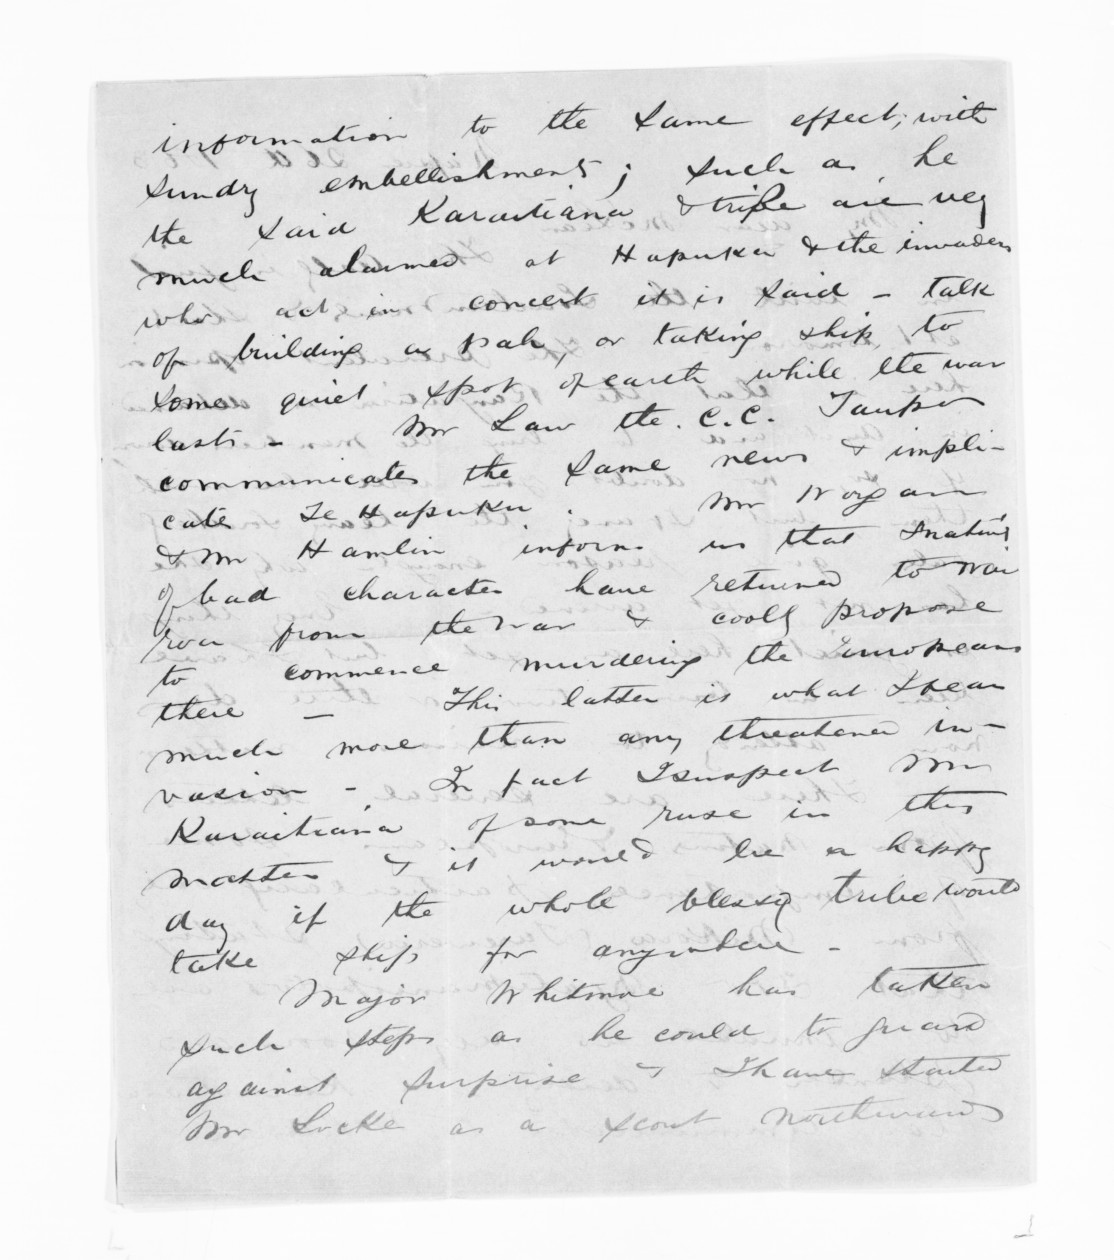 information to the same effect, with
sundry embellishments; such as, he
the said Karaitiana & tribe are very
much alarmed at Hapuku & the invaders
who act in concert it is said - talk
of building a pah, or taking ship, to
some quiet spot of earth while the war
lasts - Mr Law the. C.C. Taupo
communicates the same news & impli-
cates Te Hapuku. Mr Worgan
& Mr Hamlin inform us that natives
of bad character have returned to Wai
roa from the war & coolly propose
to commence murdering the Europeans
there - This latter is what I fear
much more than any threatened in-
vasion - In fact I suspect Mr
Karaitiana of some ruse in this
matter & it would be a happy
day if the whole blessed tribe would
take ship for anywhere -
Major Whitmore has taken
such steps as he could to guard
against surprise & I have started
Mr Locke as a scout northwards